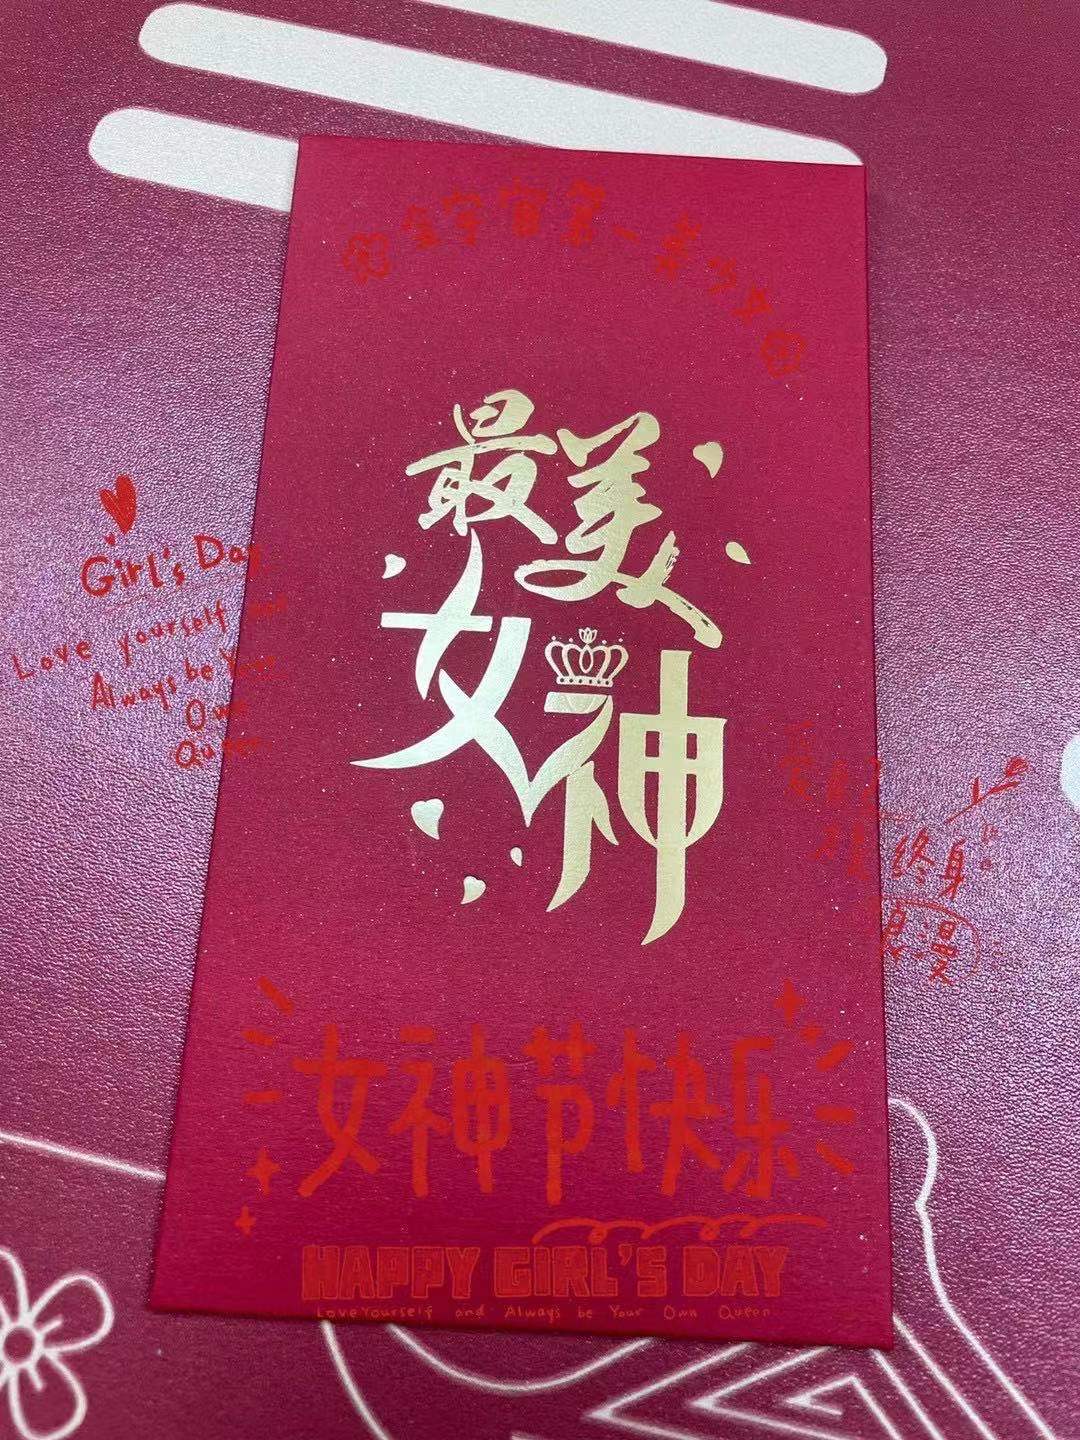 全宇宙第一美少女
最美
女神
Girl's Day
Love yourself and
Always be Your
Own
Queen
终身
浪漫
女神节快乐
HAPPY GIRL'S DAY
Love Yourself and Always be Your Own Queen